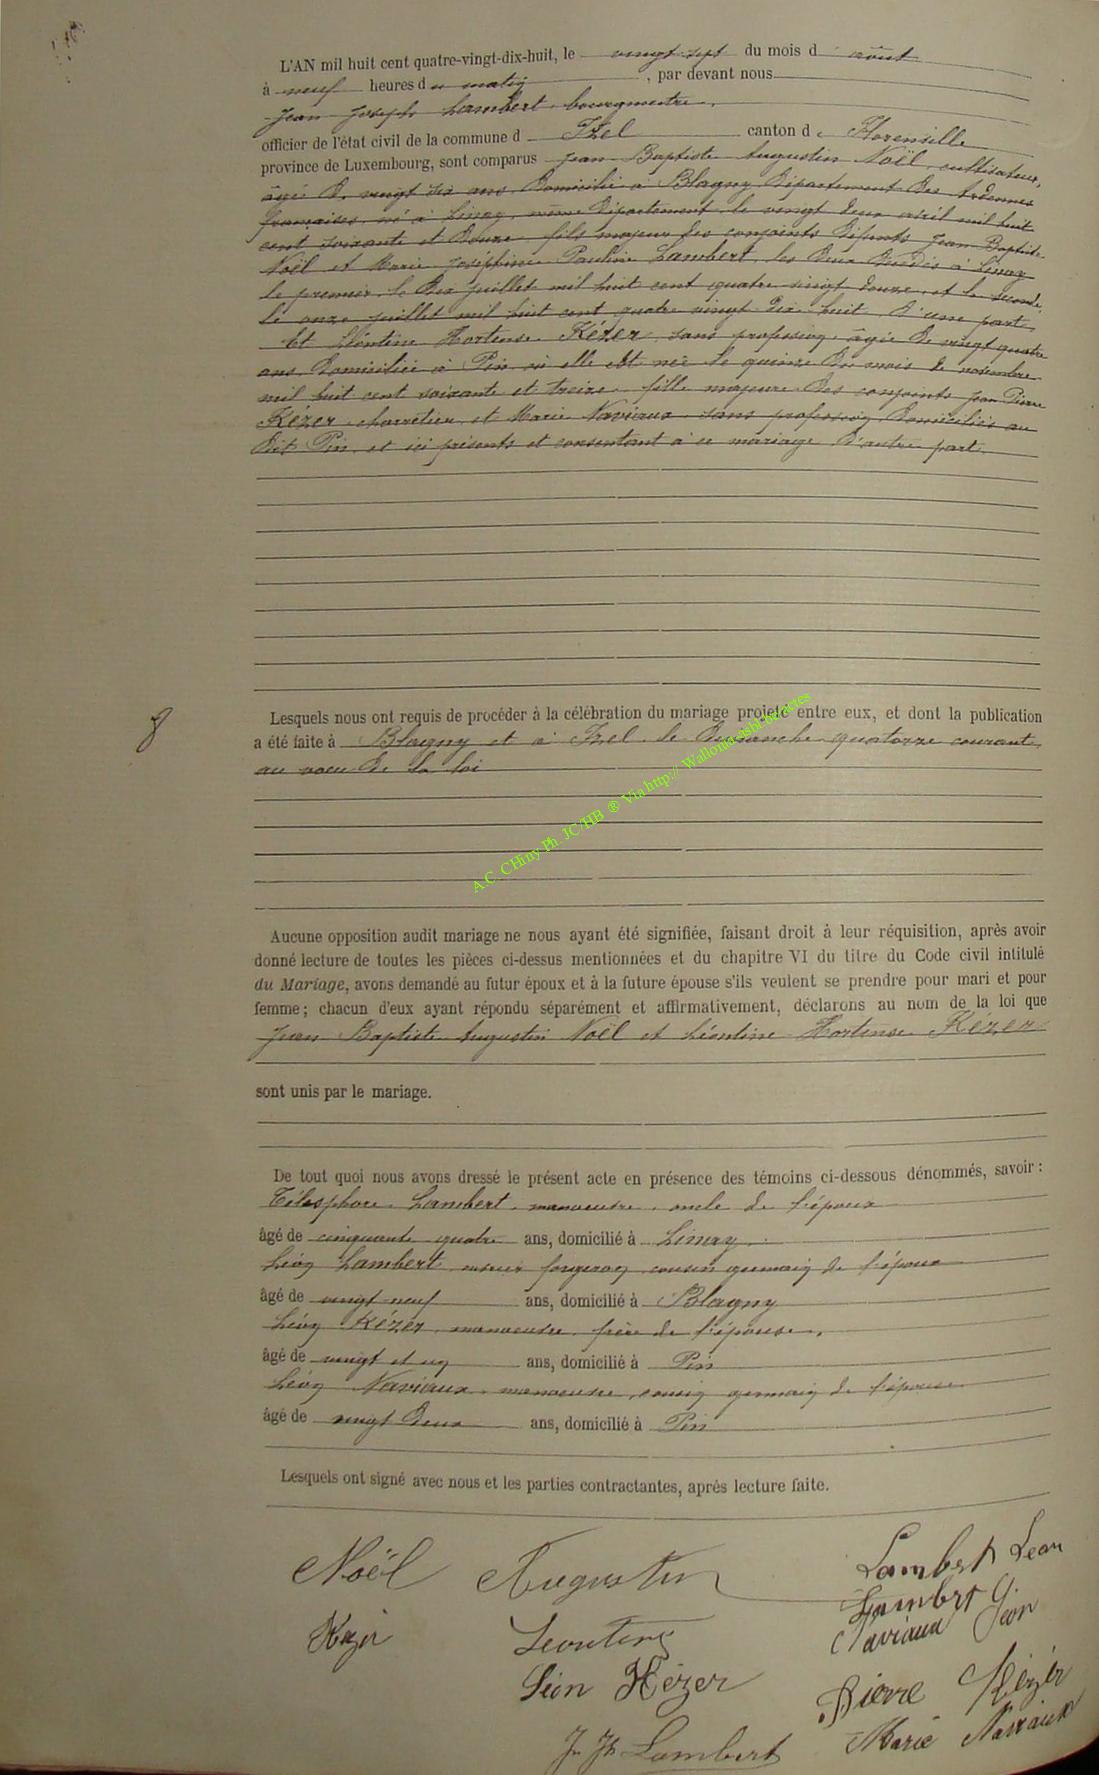 L'AN mil huit cent quatre-vingt-dix-huit, le vingt sept du mois d août
à neuf heures du matin, par devant nous
Jean Joseph Lambert bourgmestre,
officier de l'état civil de la commune d Izel canton de Florenville
province de Luxembourg, sont comparus Jean Baptiste Augustin Noël, cultivateur,
âgé de vingt six ans, domicilié à Blagny Département des Ardennes
françaises, né à Linay, même Département, le vingt deux avril mil huit
cent soixante et douze, fils majeur des conjoints défunts Jean Baptiste
Noël et Marie Joséphine Pauline Lambert, les deux décédés à Linay
le premier, le dix juillet mil huit cent quatre vingt douze, et la seconde,
le onze juillet mil huit cent quatre vingt dix huit, d'une part,
Et Léontine Hortense Kézer, sans profession, âgée de vingt quatre
ans, domiciliée à Pin où elle est née le quinze du mois de novembre
mil huit cent soixante et treize, fille majeure des conjoints Pierre
Kézer charretier, et Marie Naviaux sans profession, domiciliés au
dit Pin, et ici présents et consentant à ce mariage, d'autre part.
8
Lesquels nous ont requis de procéder à la célébration du mariage projeté entre eux, et dont la publication
a été faite à Blagny et à Izel le dimanche quatorze courant,
au vœu de la loi
A.C. CHiny Ph. JC/HB ® Via http:// Wallonia-asbl.be/actes
Aucune opposition audit mariage ne nous ayant été signifiée, faisant droit à leur réquisition, après avoir
donné lecture de toutes les pièces ci-dessus mentionnées et du chapitre VI du titre du Code civil intitulé
du Mariage, avons demandé au futur époux et à la future épouse s'ils veulent se prendre pour mari et pour
femme; chacun d'eux ayant répondu séparément et affirmativement, déclarons au nom de la loi que
Jean Baptiste Augustin Noël et Léontine Hortense Kézer
sont unis par le mariage.
De tout quoi nous avons dressé le présent acte en présence des témoins ci-dessous dénommés, savoir :
Télesphore Lambert, manœuvre, oncle de l'époux
âgé de cinquante quatre ans, domicilié à Linay.
Léon Lambert forgeron cousin germain de l'époux
âgé de vingt neuf ans, domicilié à Blagny
Léon Kézer, manœuvre, frère de l'épouse,
âgé de vingt et un ans, domicilié à Pin
Léon Naviaux, manœuvre, cousin germain de l'épouse
âgé de vingt deux ans, domicilié à Pin
Lesquels ont signé avec nous et les parties contractantes, après lecture faite.
Noël Augustin Lambert Léon
Lambert
Kezer Léontine Naviaux Léon
Léon Kézer Pierre Kézér
J. Jh Lambert Marie Naviaux